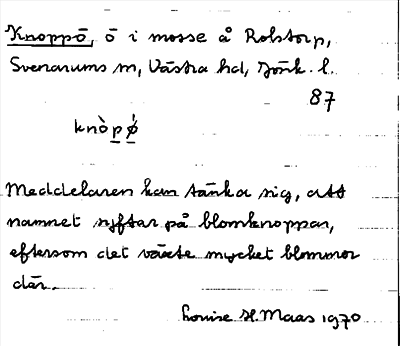 Knoppö, ö i mosse å Rolstorp,
Svenarums sn, Västra hd, Jönk. l.
87
knòpǿ
Meddelaren kan tänka sig, att
namnet syftar på blomknoppar,
eftersom det växte mycket blommor
där.
Louise H. Maas 1970